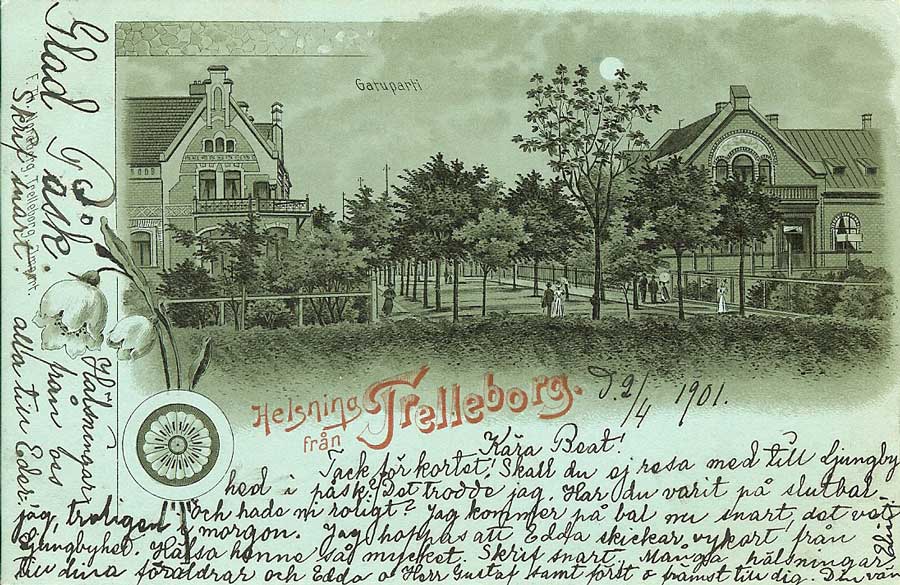 Gatuparti
Helsning
från
Trelleborg.
d. 2/4 1901.
Kära Beat!
Tack för kortet! Skall du ej resa med till Ljungby
hed i påsk? Det trodde jag. Har du varit på slutbal
och hade ni roligt? Jag kommer på bal nu snart, det vet
jag, troligen i morgon. Jag hoppas att Edda skickar vykort från
Ljungbyhed. Hälsa henne så mycket. Skrif snart. Många hälsningar
till dina föräldrar och Edda o Herr Gustaf samt först o främst till dig. Din vän
Elin
Glad Påsk.
Skrif snart.
Hälsningar
från oss
alla till Eder
Trelleborg